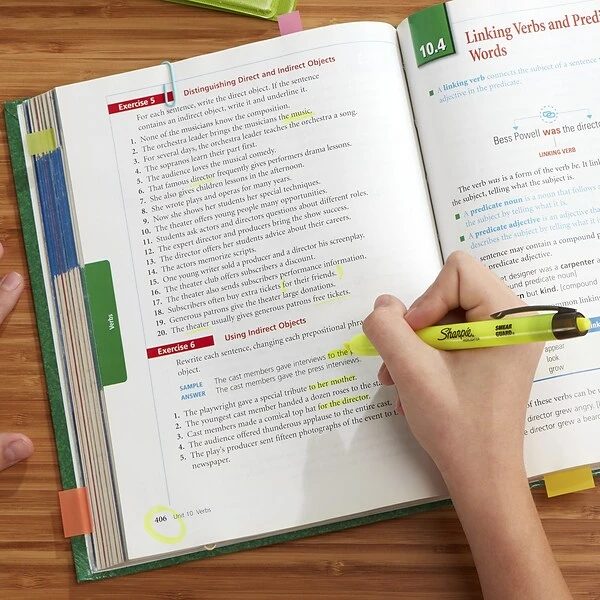 Exercise 5 Distinguishing Direct and Indirect Objects
For each sentence, write the direct object. If the sentence
contains an indirect object, write it and underline it.
1. None of the musicians know the composition.
2. The orchestra leader brings the musicians the music.
3. For several days, the orchestra leader teaches the orchestra a song.
4. The sopranos learn their part first.
5. The audience loves the musical comedy.
6. That famous director frequently gives performers drama lessons.
7. She also gives children lessons in the afternoon.
8. She wrote plays and operas for many years.
9. Now she shows her students her special techniques.
10. The theater offers young people many opportunities.
11. Students ask actors and directors questions about different roles.
12. The expert director and producers bring the show success.
13. The director offers her students advice about their careers.
14. The actors memorize scripts.
15. One young writer sold a producer and a director his screenplay.
16. The theater club offers subscribers a discount.
17. The theater also sends subscribers performance information.
18. Subscribers often buy extra tickets for their friends.
19. Generous patrons give the theater large donations.
20. The theater usually gives generous patrons free tickets.
Exercise 6 Using Indirect Objects
Rewrite each sentence, changing each prepositional phra
object.
SAMPLE The cast members gave interviews to the p
ANSWER The cast members gave the press interviews.
1. The playwright gave a special tribute to her mother.
2. The youngest cast member handed a dozen roses to the sta
3. Cast members made a conical top hat for the director.
4. The audience offered thunderous applause to the entire cast.
5. The play's producer sent fifteen photographs of the event to
newspaper.
406 Unit 10 Verbs
Verbs
10.4 Linking Verbs and Predi
Words
A linking verb connects the subject of a sentence
adjective in the predicate.
Bess Powell was the directo
LINKING VERB
The verb was is a form of the verb be. It link
the subject, telling what the subject is.
A predicate noun is a noun that follows
the subject by telling what it is.
A predicate adjective is an adjective tha
describes the subject by telling what it is
sentence may contain a compound
predicate adjective.
et designer was a carpenter
und predicate noun]
n but kind. [Compound
ommon linking
appear
look
grow
of these verbs can be
director grew angry.
e director grew a bear
Sharpie
SMEAR
GUARD